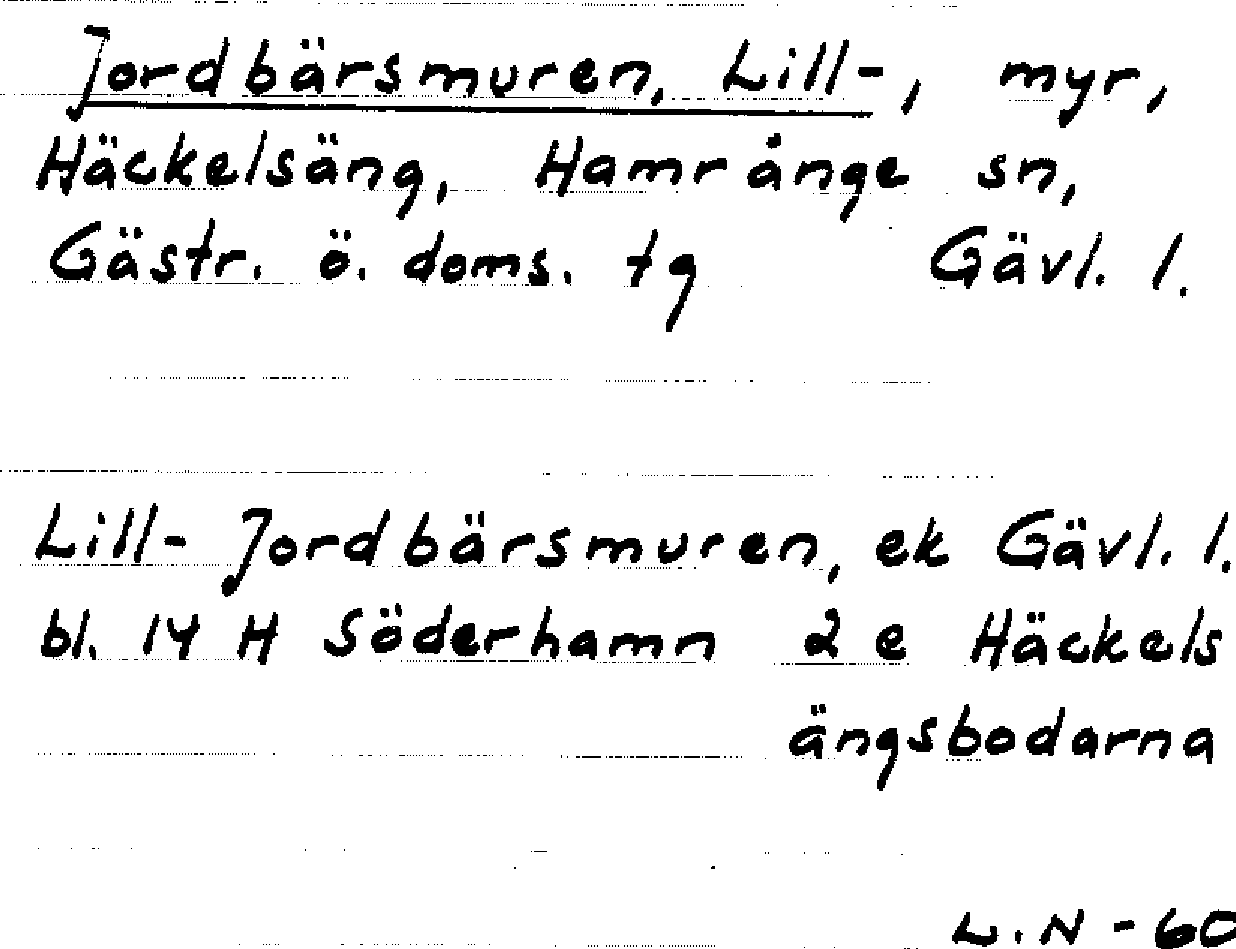 Jordbärsmuren, Lill-, myr,
Häckelsäng, Hamrånge sn,
Gästr. ö. doms. tg Gävl. l.
Lill-Jordbärsmuren, ek Gävl. l.
bl. 14 H Söderhamn 2 e Häckels
ängsbodarna
L.N-60